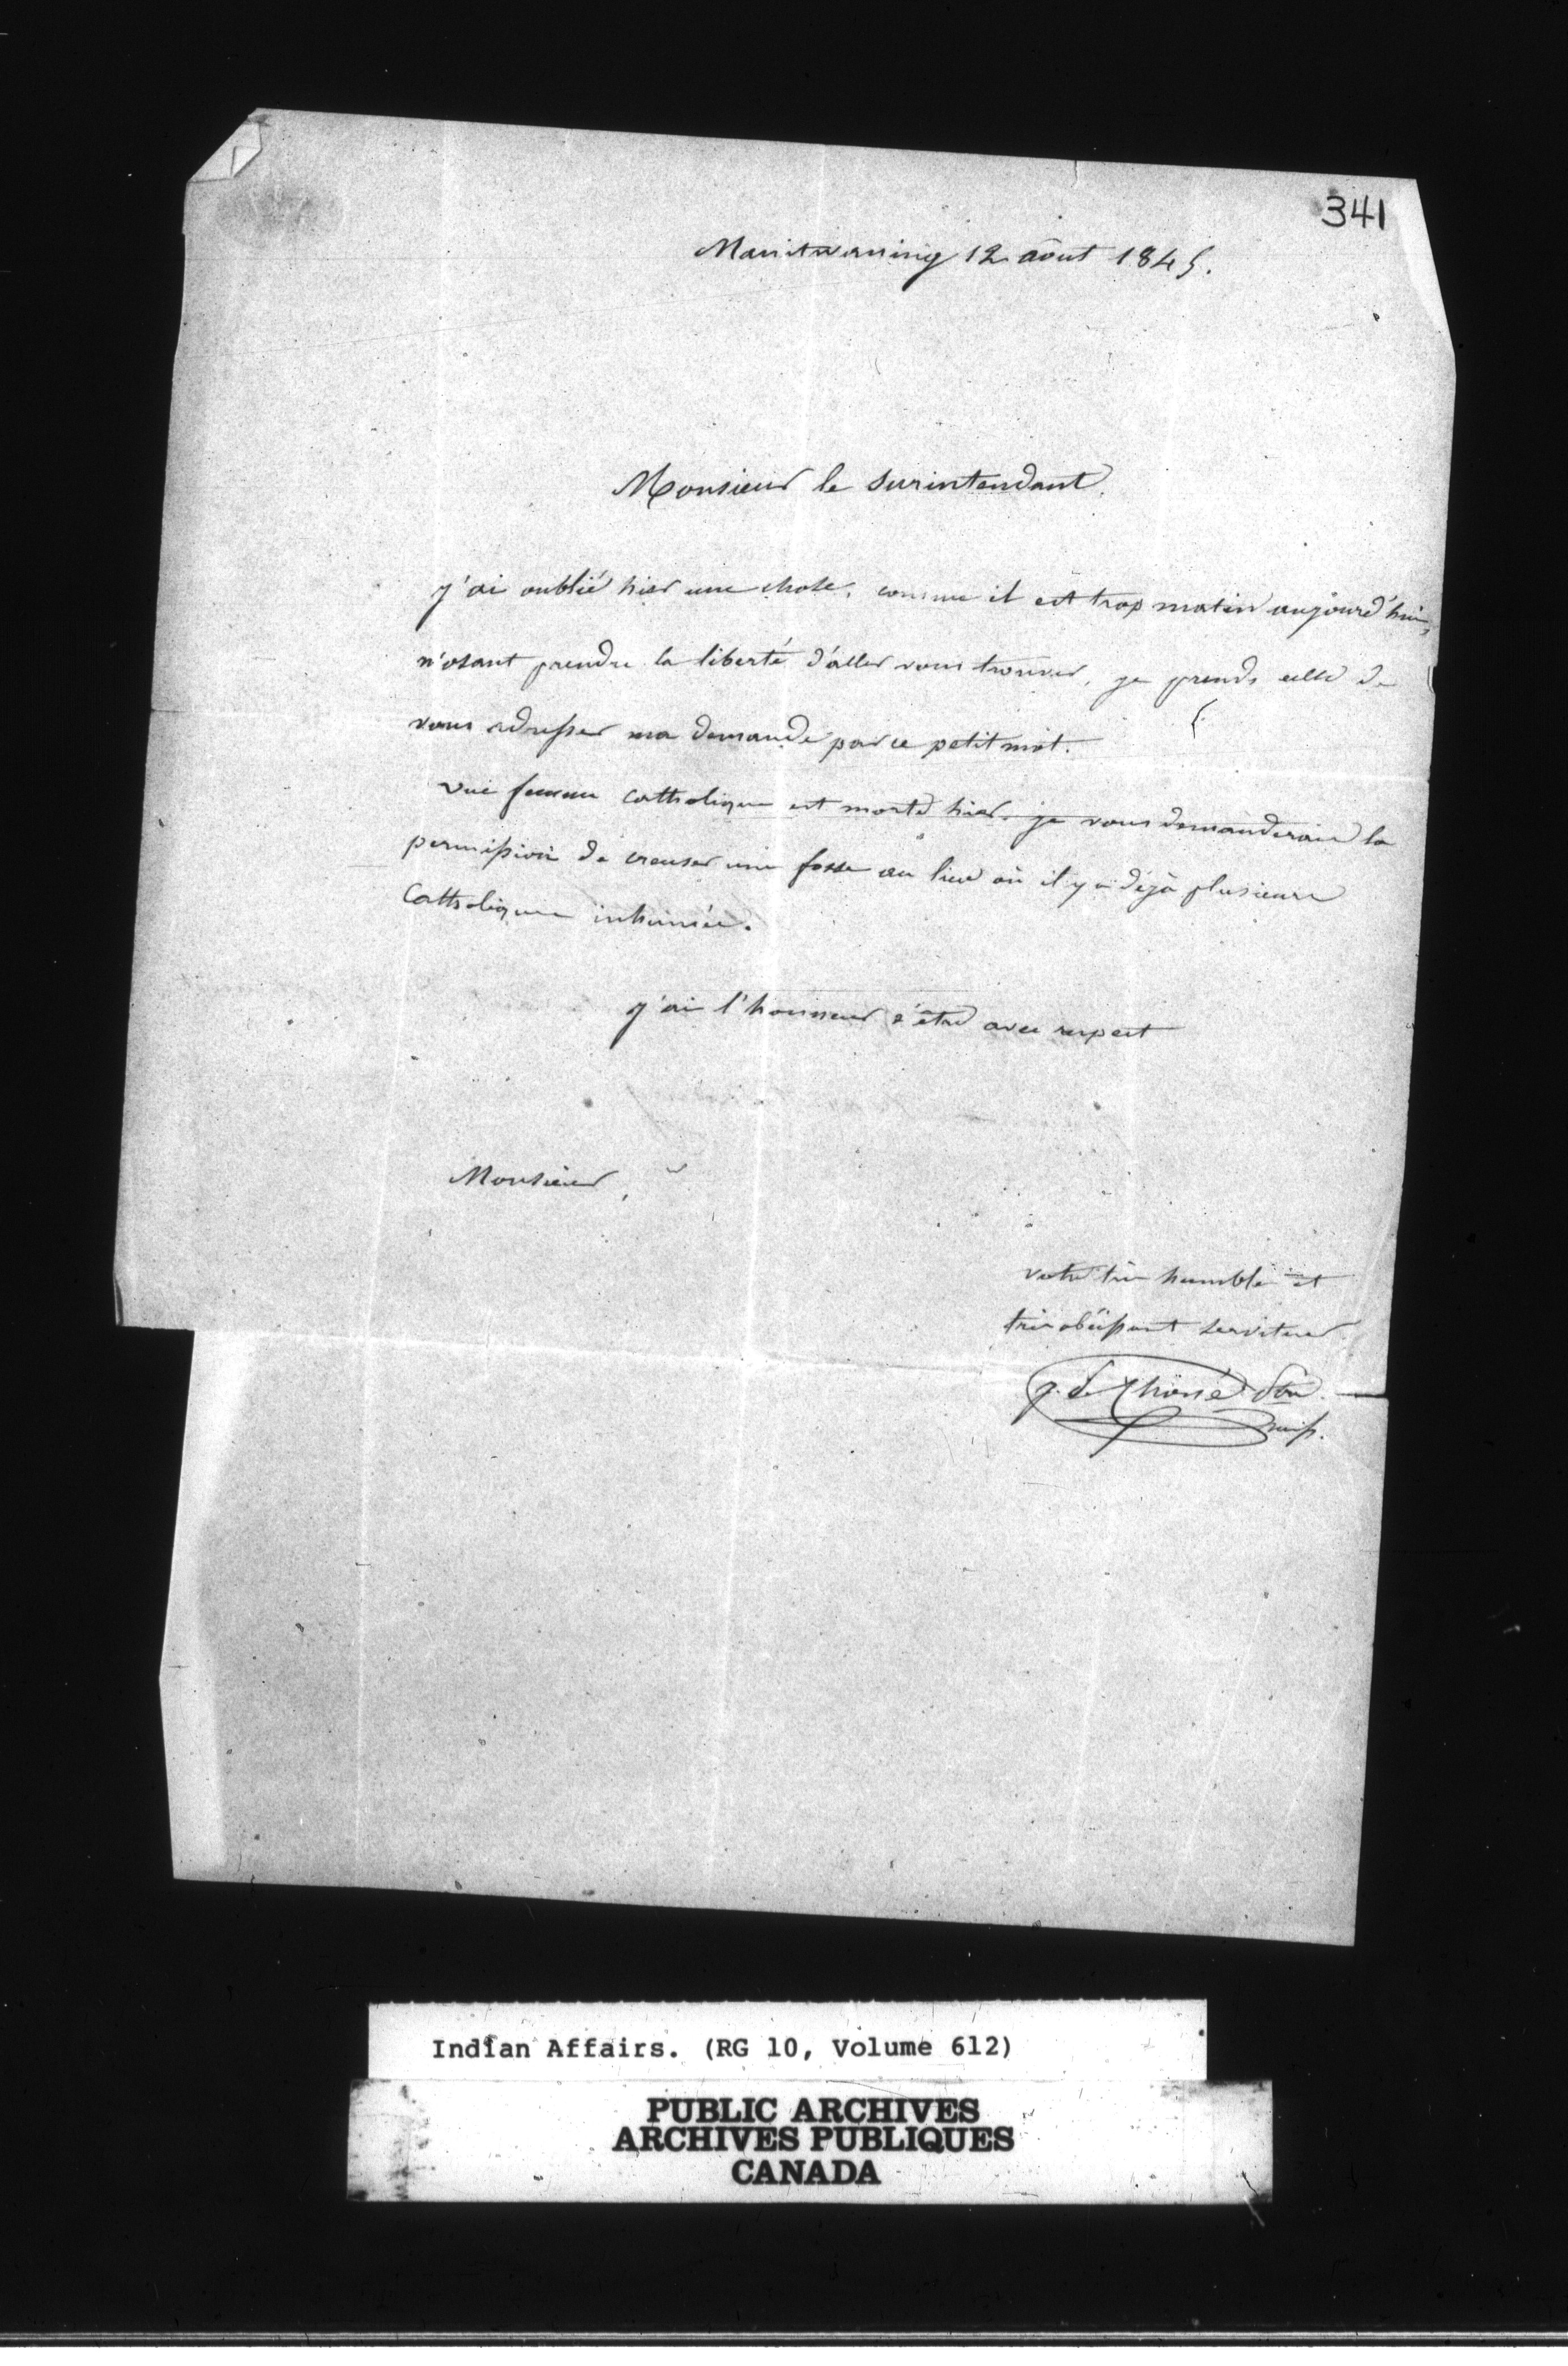 341
Manitwaning 12 août 1845.
Monsieur le surintendant,
j'ai oublié hier une chose, comme il est trop matin aujourd'hui,
n'osant prendre la liberté d'aller vous trouver, je prends celle de
vous adresser ma demande par ce petit mot.
une femme catholique est morte hier. je vous demanderais la
permission de creuser une fosse au lieu où il y a déjà plusieurs
Catholiques inhumés.
j'ai l'honneur d'être avec respect
Monsieur,
votre très humble et
très obéissant serviteur
j. P. Choné ptre.
miss.
Indian Affairs. (RG 10, Volume 612)
PUBLIC ARCHIVES
ARCHIVES PUBLIQUES
CANADA